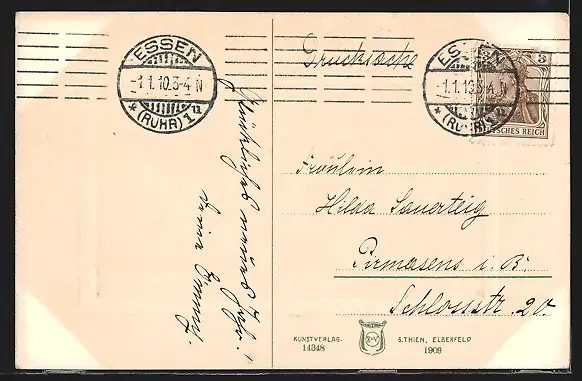 ESSEN
-1.1.10.3-4 N
* (RUHR) 1u
Drucksache
ESSEN
-1.1.10.3-4 N
* (RUHR) 1u
3
DEUTSCHES REICH
Glückliches neues Jahr!
Deine Emmy.
Fräulein
Hilda Sauerteig
Pirmasens i. B.
Schlossstr. 20
KUNSTVERLAG. G.THIEN, ELBERFELD
14348 1909